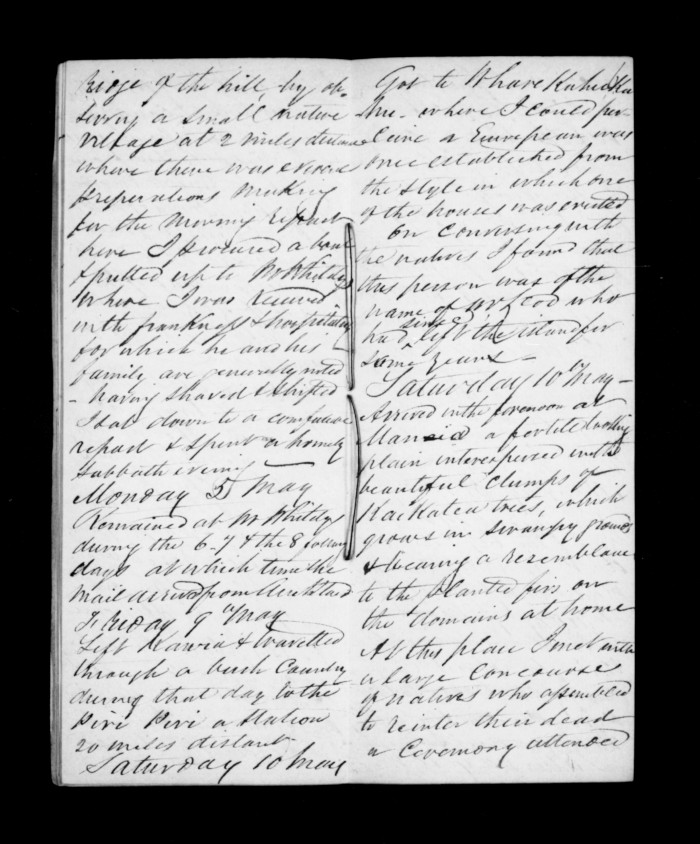 ridge of the hill by ob-
serving a small native
village at 2 miles distance
where there was evening
preperations making
for the Morning Repast
here I procured a
& pulled up to Mr Whitelys
where I was received
with frankness & hospitality
for which he and his
family are generally noted
- having shaved & shifted
I sat down to a
repast & spent a homely
Sabbath evening
Monday 5 May
Remained at Mr Whitelys
during the 6-7 & the 8 following
days at which time the
mail arrived from Auckland
Friday 9th May
Left Kawia & travelled
through a bush Country
during that day to the
Piri Piri a Station
20 miles distant
Saturday 10 May
Got to Whare
where I could per-
ceive a European was
once established from
the style in which one
of the houses was erected
On Conversing with
the natives I found that
this person was of the
name of McLeod who
had since left the island for
some years -
Saturday 10th May -
Arrived in the forenoon at
a fertile looking
plain interspersed with
beautiful clumps of
Kaikatea trees, which
grows in swampy grounds
& bearing a resemblance
to the planted firs on
the domains at home
At this place I met with
a large concourse
of natives who assembled
to reinter their dead
a Ceremony attended